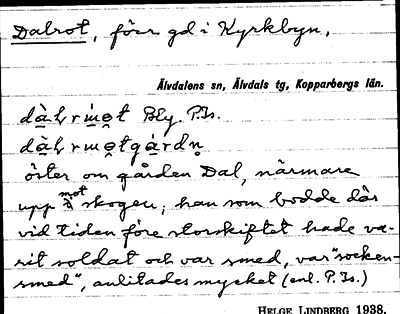 Dalrot, förr gd i Kyrkbyn,
Älvdalens sn, Älvdals tg, Kopparbergs län.
östər om gården Dal, närmare
upp mot skogen; han som bodde där
vid tiden före storskiftet hade va-
rit soldat och var smed, var "socken-
smed", anlitades mycket (enl. P. Js.)
HELGE LINDBERG 1938.